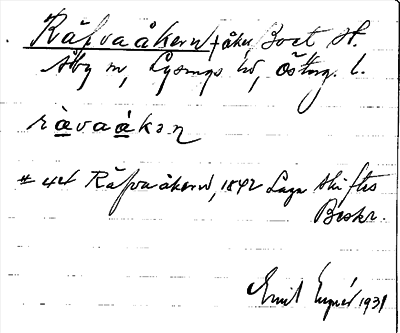 Räfvaåkern, åker, Boet St.
Åby sn, Lysings hd, Östg. l.
ràvaákən
# 44 Räfvaåkern, 1842 Laga skiftes
Beskr.
Emil 1931